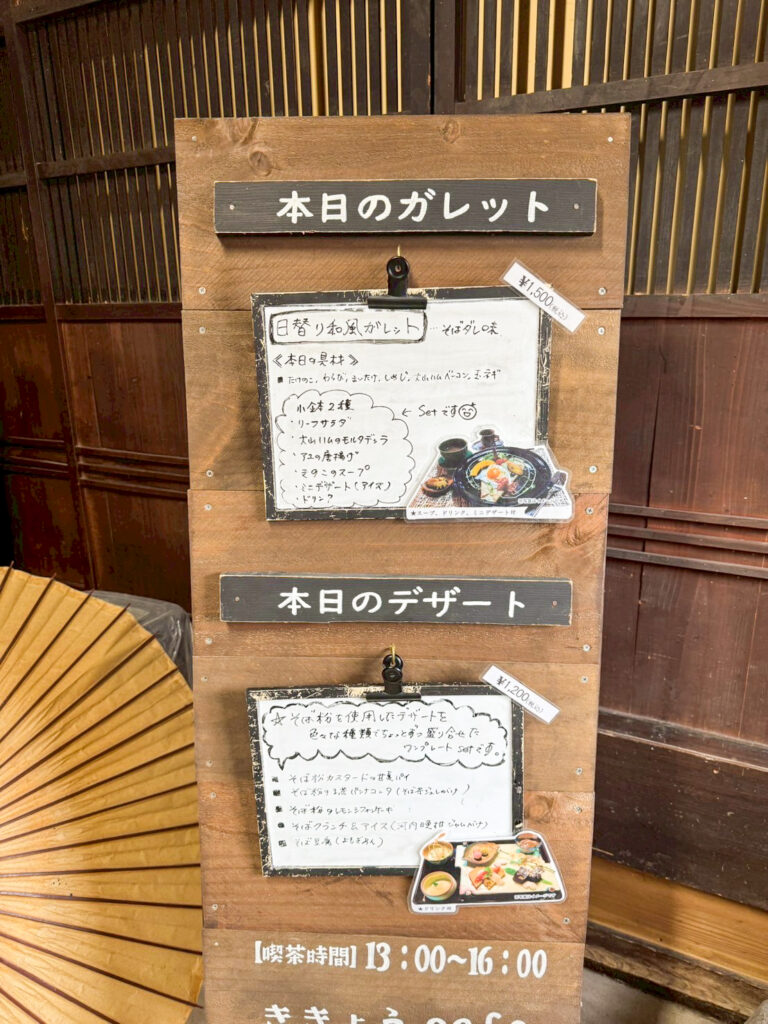 本日のガレット
¥1,500(税込)
日替り和風ガレット…そばダレ味
《本日の具材》
■たけのこ、わらび、まいたけ、しめじ、大山ハムベーコン、玉ネギ
小鉢2種
・リーフサラダ
・大山ハムのモルタデッラ
・アユの唐揚げ
・きのこのスープ
・ミニデザート(アイス)
・ドリンク
← Setです
★スープ、ドリンク、ミニデザート付
本日のデザート
¥1,200(税込)
☆そば粉を使用したデザートを
色々な種類でちょっとずつ盛り合せた
ワンプレートSetです。
そば粉カスタードの
パイ
そば粉
パンナコッタ(そば茶
)
そば粉のレモンシフォンケーキ
そばクランチ&アイス(河内晩柑ジャムがけ)
そば豆腐(よもぎあん)
★ドリンク付
【喫茶時間】13:00~16:00
ききょう cafe